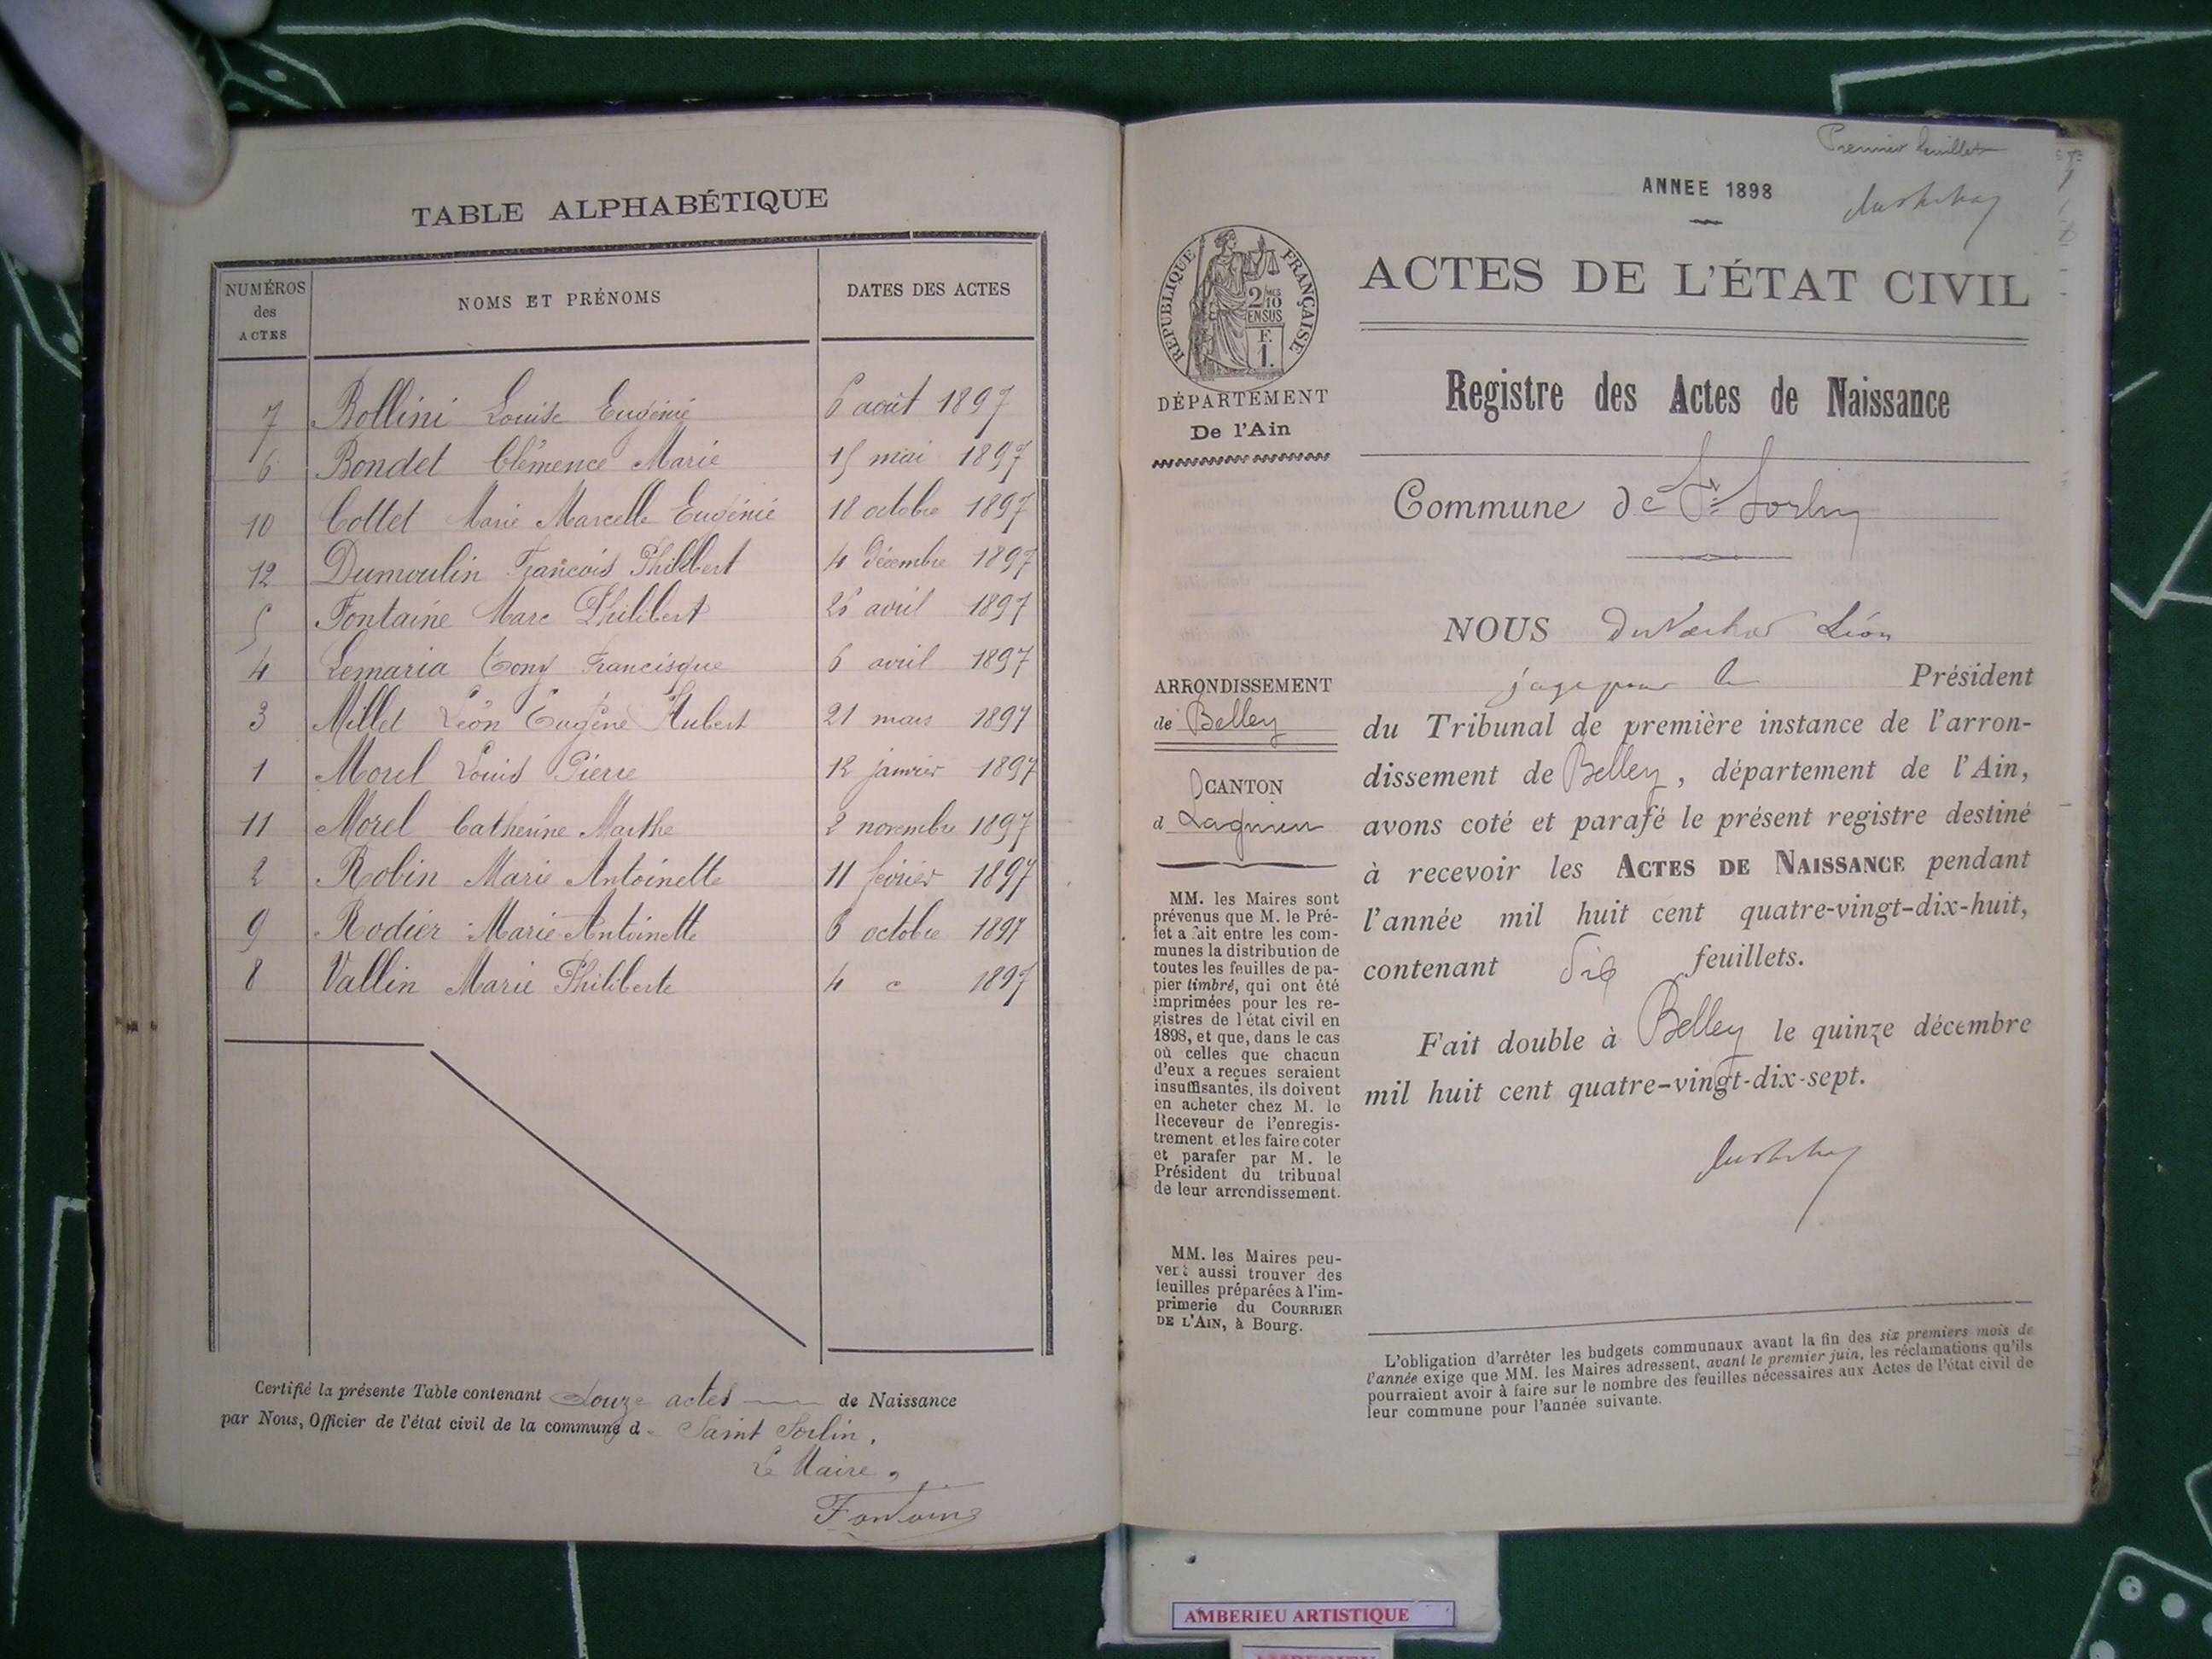 TABLE ALPHABÉTIQUE
NUMÉROS
des
ACTES
NOMS ET PRÉNOMS
DATES DES ACTES
7 Bollini Louise Eugénie 6 août 1897
6 Bondet Clémence Marie 15 mai 1897
10 Collet Marie Marcelle Eugénie 18 octobre 1897
12 Dumoulin François Philibert 4 Décembre 1897
5 Fontaine Marc Philibert 25 avril 1897
4 Lemaria Tony Francisque 6 avril 1897
3 Millet Léon Eugène Hubert 21 mars 1897
1 Morel Louis Pierre 12 janvier 1897
11 Morel Catherine Marthe 2 novembre 1897
2 Robin Marie Antoinette 11 février 1897
9 Rodier Marie Antoinette 6 octobre 1897
8 Vallin Marie Philiberte 4 1897
Certifié la présente Table contenant douze actes de Naissance
par Nous, Officier de l'état civil de la commune d Saint Sorlin,
Le Maire,
Fontaine
Premier feuillet
ANNEE 1898
RÉPUBLIQUE FRANÇAISE
2/10
EN SUS
F.
1.
DÉPARTEMENT
De l'Ain
ACTES DE L'ÉTAT CIVIL
Registre des Actes de Naissance
Commune de St Sorlin
ARRONDISSEMENT
de Belley
CANTON
d Lagnieu
MM. les Maires sont
prévenus que M. le Pré-
fet a fait entre les com-
munes la distribution de
toutes les feuilles de pa-
pier timbré, qui ont été
imprimées pour les re-
gistres de l'état civil en
1898, et que, dans le cas
où celles que chacun
d'eux a reçues seraient
insuffisantes, ils doivent
en acheter chez M. le
Receveur de l'enregis-
trement et les faire coter
et parafer par M. le
Président du tribunal
de leur arrondissement.
MM. les Maires peu-
vent aussi trouver des
feuilles préparées à l'im-
primerie du COURRIER
DE L'AIN, à Bourg.
NOUS Léon
juge pour le Président
du Tribunal de première instance de l'arron-
dissement de Belley, département de l'Ain,
avons coté et parafé le présent registre destiné
à recevoir les ACTES DE NAISSANCE pendant
l'année mil huit cent quatre-vingt-dix-huit,
contenant feuillets.
Fait double à Belley le quinze décembre
mil huit cent quatre-vingt-dix-sept.
L'obligation d'arrêter les budgets communaux avant la fin des six premiers mois de
l'année exige que MM. les Maires adressent, avant le premier juin, les réclamations qu'ils
pourraient avoir à faire sur le nombre des feuilles nécessaires aux Actes de l'état civil de
leur commune pour l'année suivante.
AMBERIEU ARTISTIQUE